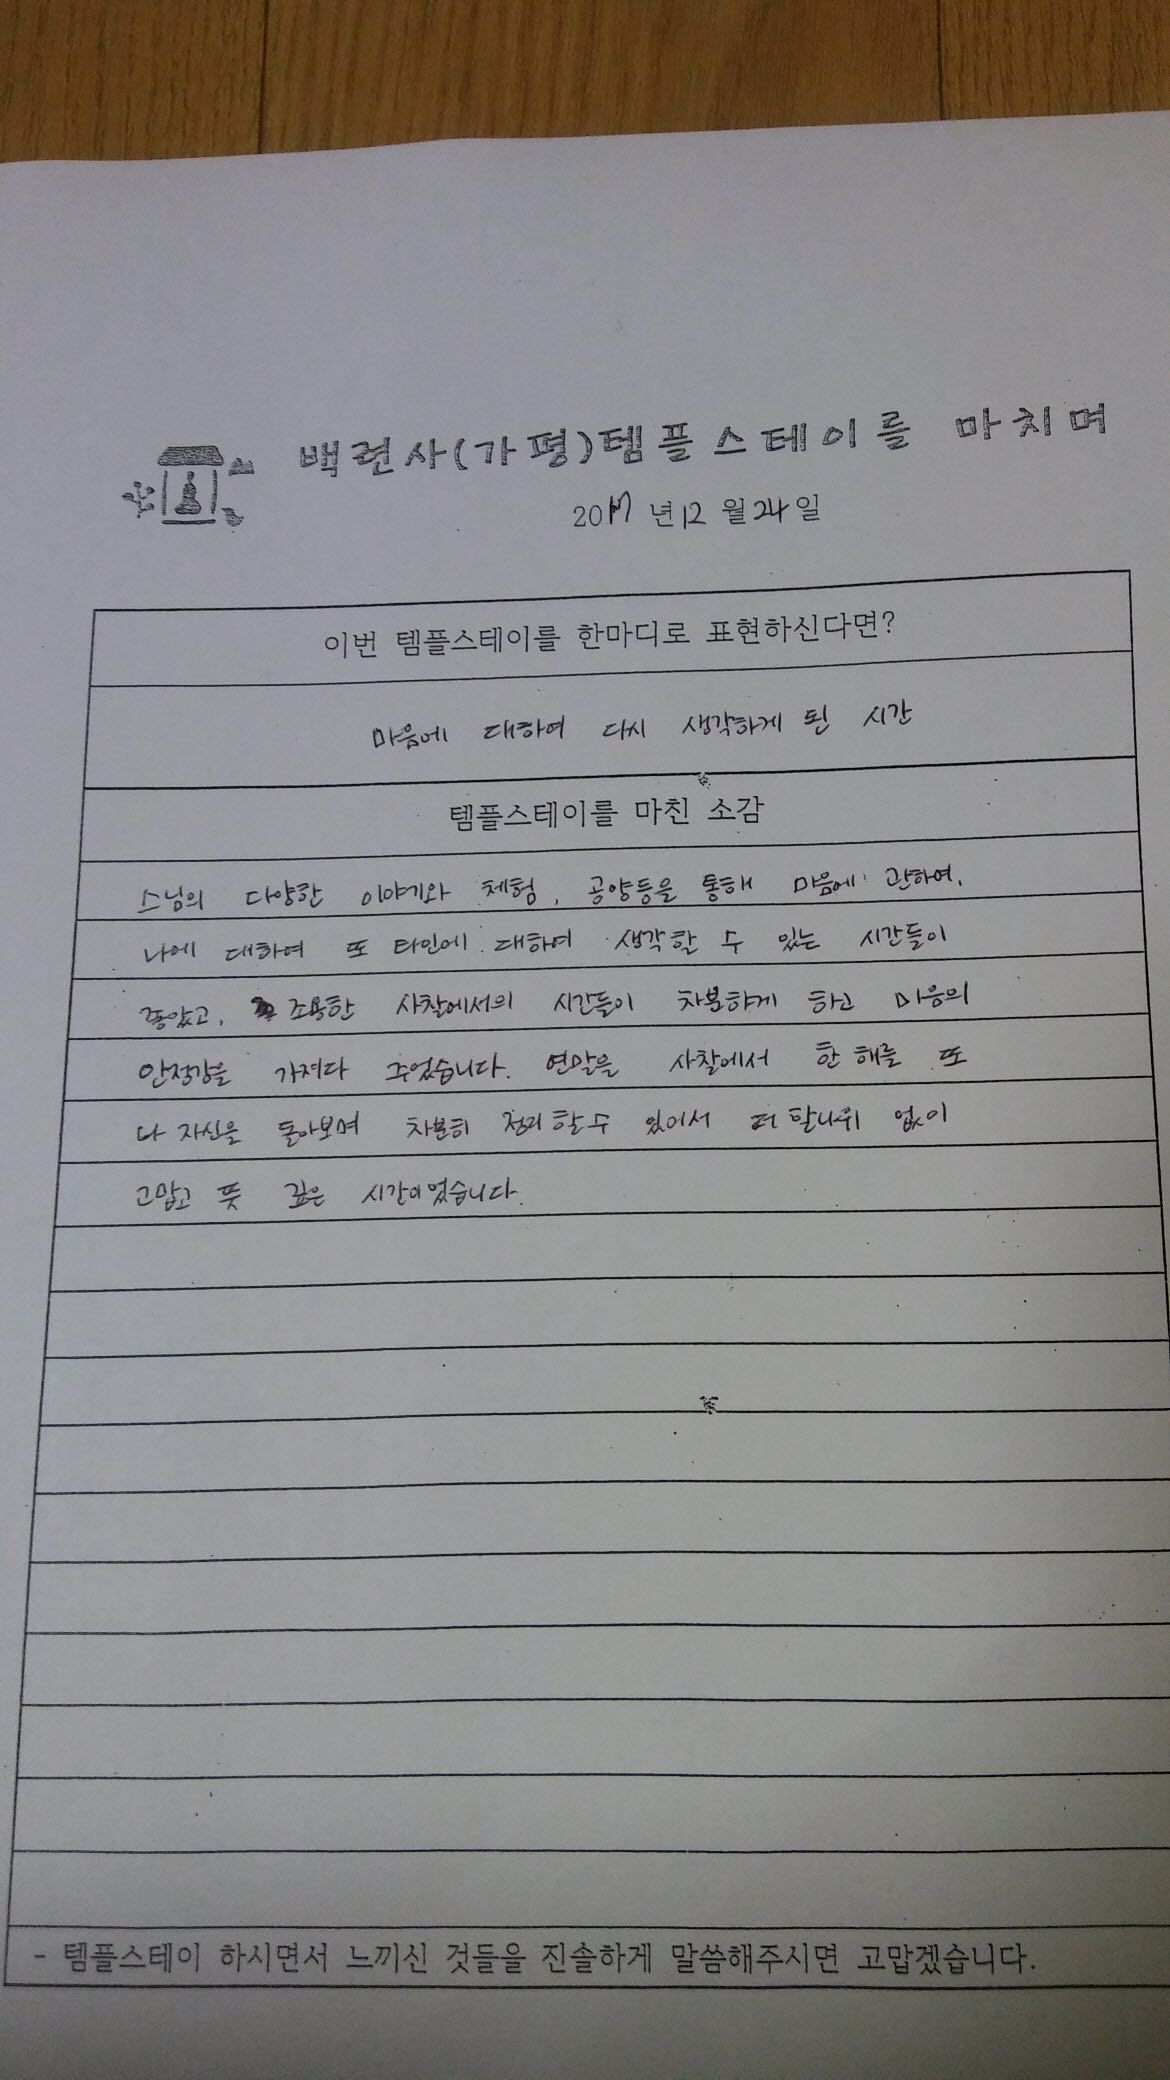 백련사(가평)템플스테이를 마치며
2017년 12월 24일
이번 템플스테이를 한마디로 표현하신다면?
마음에 대하여 다시 생각하게 된 시간
템플스테이를 마친 소감
스님의 다양한 이야기와 체험, 공양등을 통해 마음에 관하여,
나에 대하여 또 타인에 대하여 생각할 수 있는 시간들이
좋았고, 조용한 사찰에서의 시간들이 차분하게 하고 마음의
안정감을 가져다 주었습니다. 연말을 사찰에서 한 해를 또
나 자신을 돌아보며 차분히 정리할 수 있어서 더할나위 없이
고맙고 뜻 깊은 시간이었습니다.
- 템플스테이 하시면서 느끼신 것들을 진솔하게 말씀해주시면 고맙겠습니다.